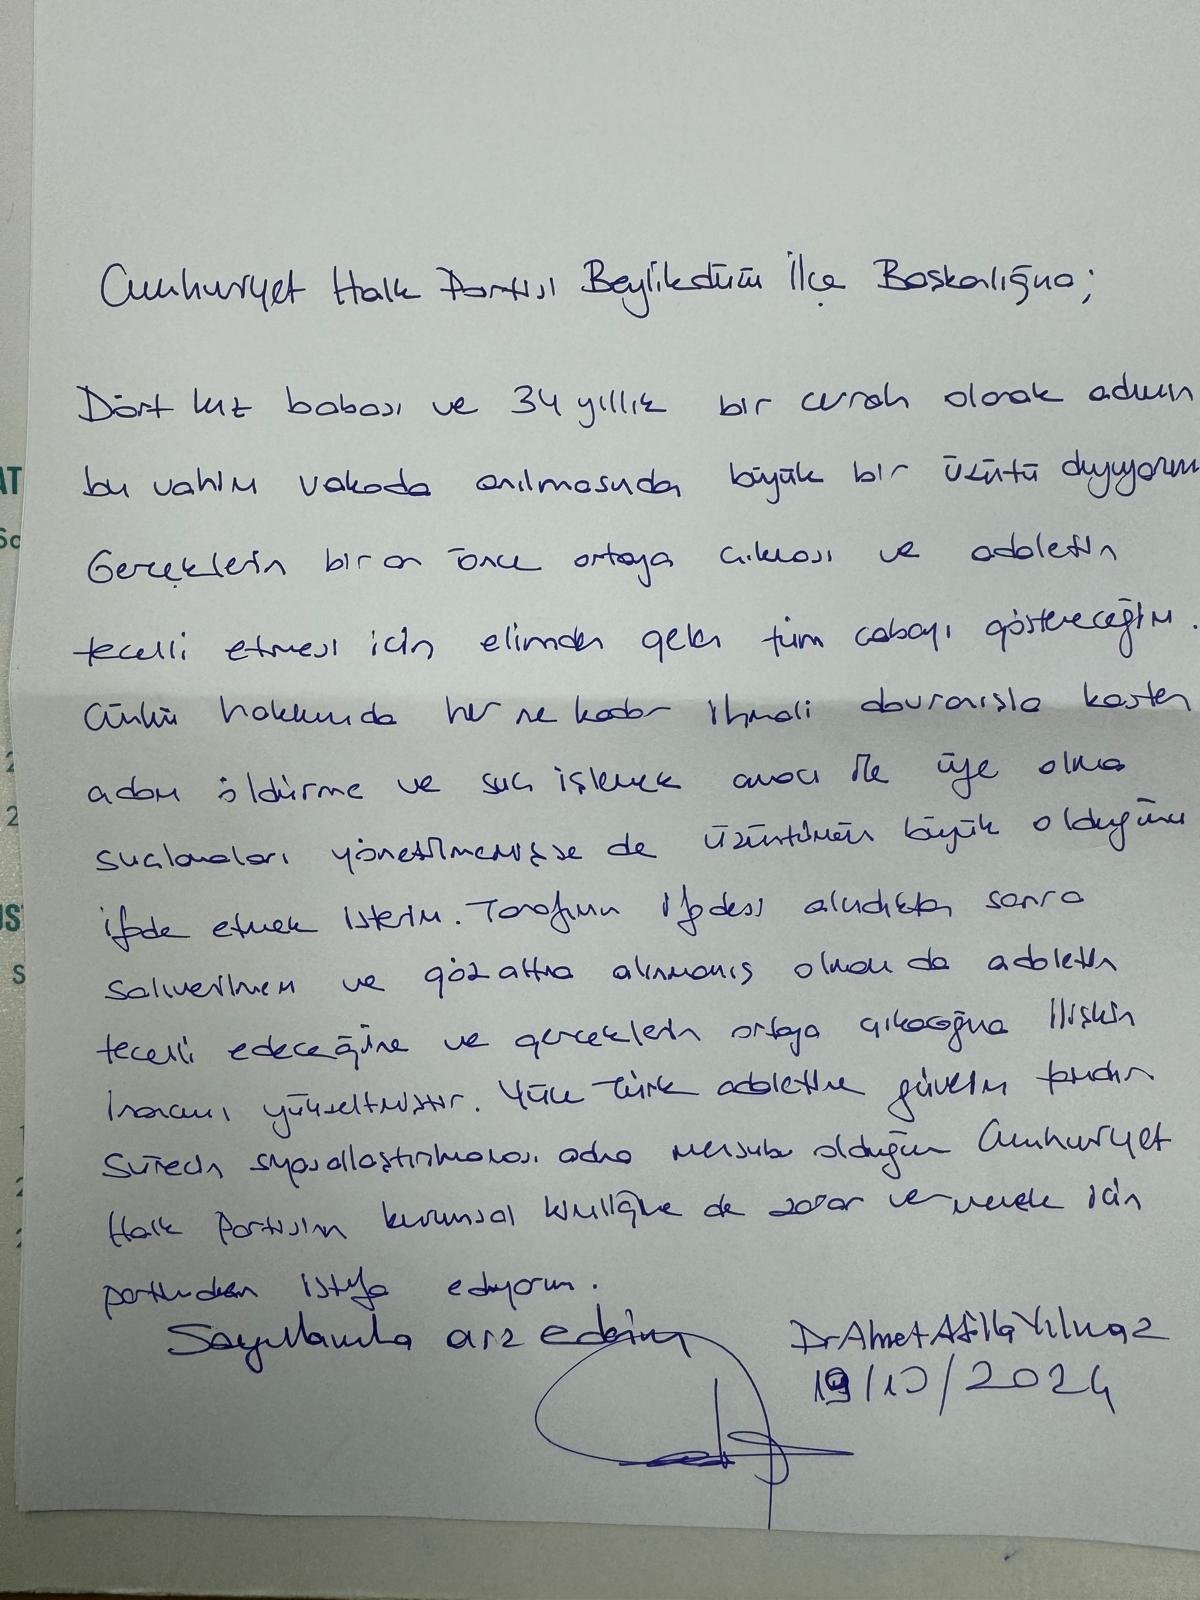 Cumhuriyet Halk Partisi Beylikdüzü İlçe Başkanlığına;
Dört kız babası ve 34 yıllık bir cerrah olarak adımın
bu vahim vakada anılmasından büyük bir üzüntü duyuyorum
Gerçeklerin bir an önce ortaya çıkması ve adaletin
tecelli etmesi için elimden gelen tüm çabayı göstereceğim.
Çünkü hakkımda her ne kadar ihmali davranışla kasten
adam öldürme ve suç işlemek amacı ile üye olma
suçlamaları yöneltilmemişse de üzüntümün büyük olduğunu
ifade etmek isterim. Tarafımın ifadesi alındıktan sonra
salıverilmem ve göz altına alınmamış olmam da adaletin
tecelli edeceğine ve gerçeklerin ortaya çıkacağına ilişkin
inancımı yükseltmiştir. Yüce Türk adaletine güvenim tamdır.
Sürecin siyasallaştırılmaması adına mensubu olduğum Cumhuriyet
Halk Partisinin kurumsal kimliğine de zarar vermemek için
partimden istifa ediyorum.
Saygılarımla arz ederim
Dr Ahmet Atilla Yılmaz
19/10/2024
AT
2
2
UST
S
2